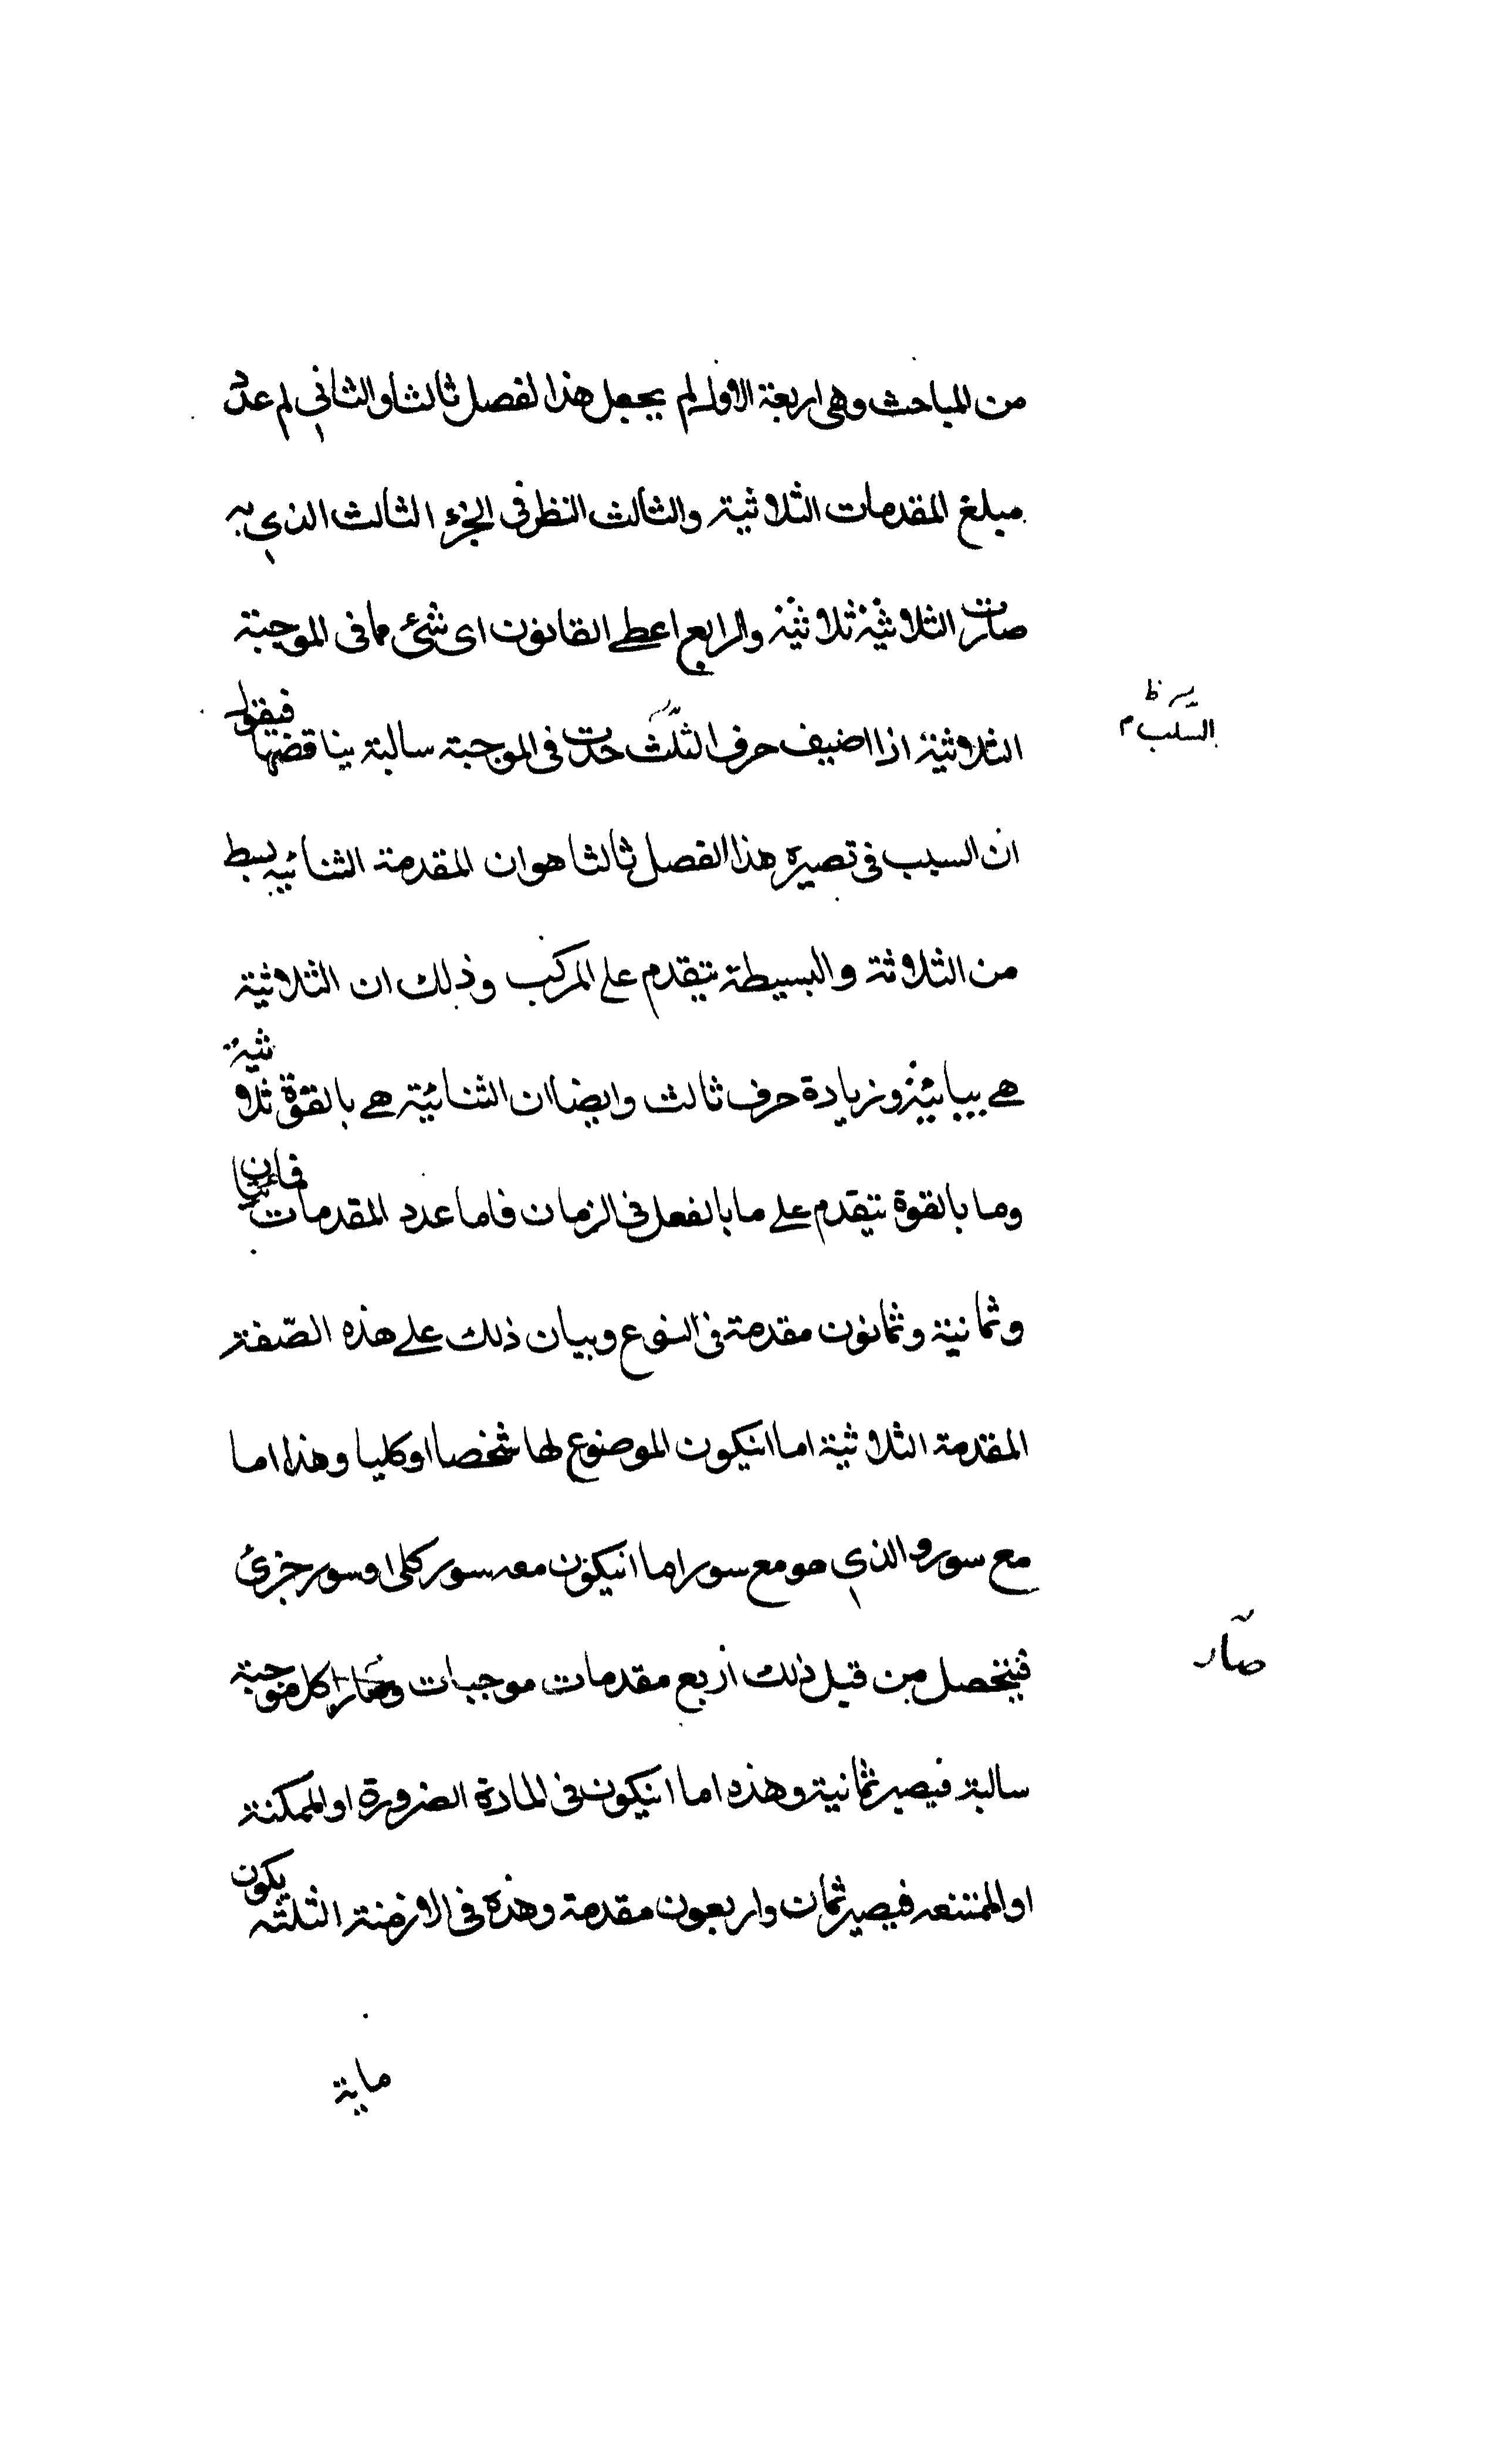 من المباحث وهى اربعة الاول لم يجعل هذا لفصل ثالثا والثاني لم عدد
مبلغ المقدمات الثلاثية والثالث النظر فى الجزء الثالث الذي به
صارت الثلاثية ثلاثية والرابع اعطى القانون اى شئ مما فى الموجبة
الثلاثية اذا اضيف حرف الثلث حدث فى الموجبة سالبة يناقضها فيقول
السلب م
ان السبب فى تصيره هذا الفصل ثالثا هو ان المقدمة الثنائية بسط
من الثلاثة والبسيطة تتقدم على المركب وذلك ان الثلاثية
هى وزيادة حرف ثالث وايضا ان الثنائية هى بالقوة ثلاثية
وما بالقوة تتقدم على ما بالفعل فى الزمان فاما عدد المقدمات
وثمانية وثمانون مقدمة فى النوع وبيان ذلك على هذه الصّفة
المقدمة الثلاثية اما انيكون الموضوع لها شخصا او كليا وهذا اما
مع سور والذي هو مع سور اما انيكون معه سور كلى او سور جزئ
فيتحصل من قبل ذلك اربع مقدمات موجبات وصار كل موجبة
صار
سالبة فيصير ثمانية وهذه اما انيكون فى المادة الضرورة او الممكنة
او الممتنعه فيصير ثمان واربعون مقدمة وهذه فى الازمنة الثلثه يكون
ماية